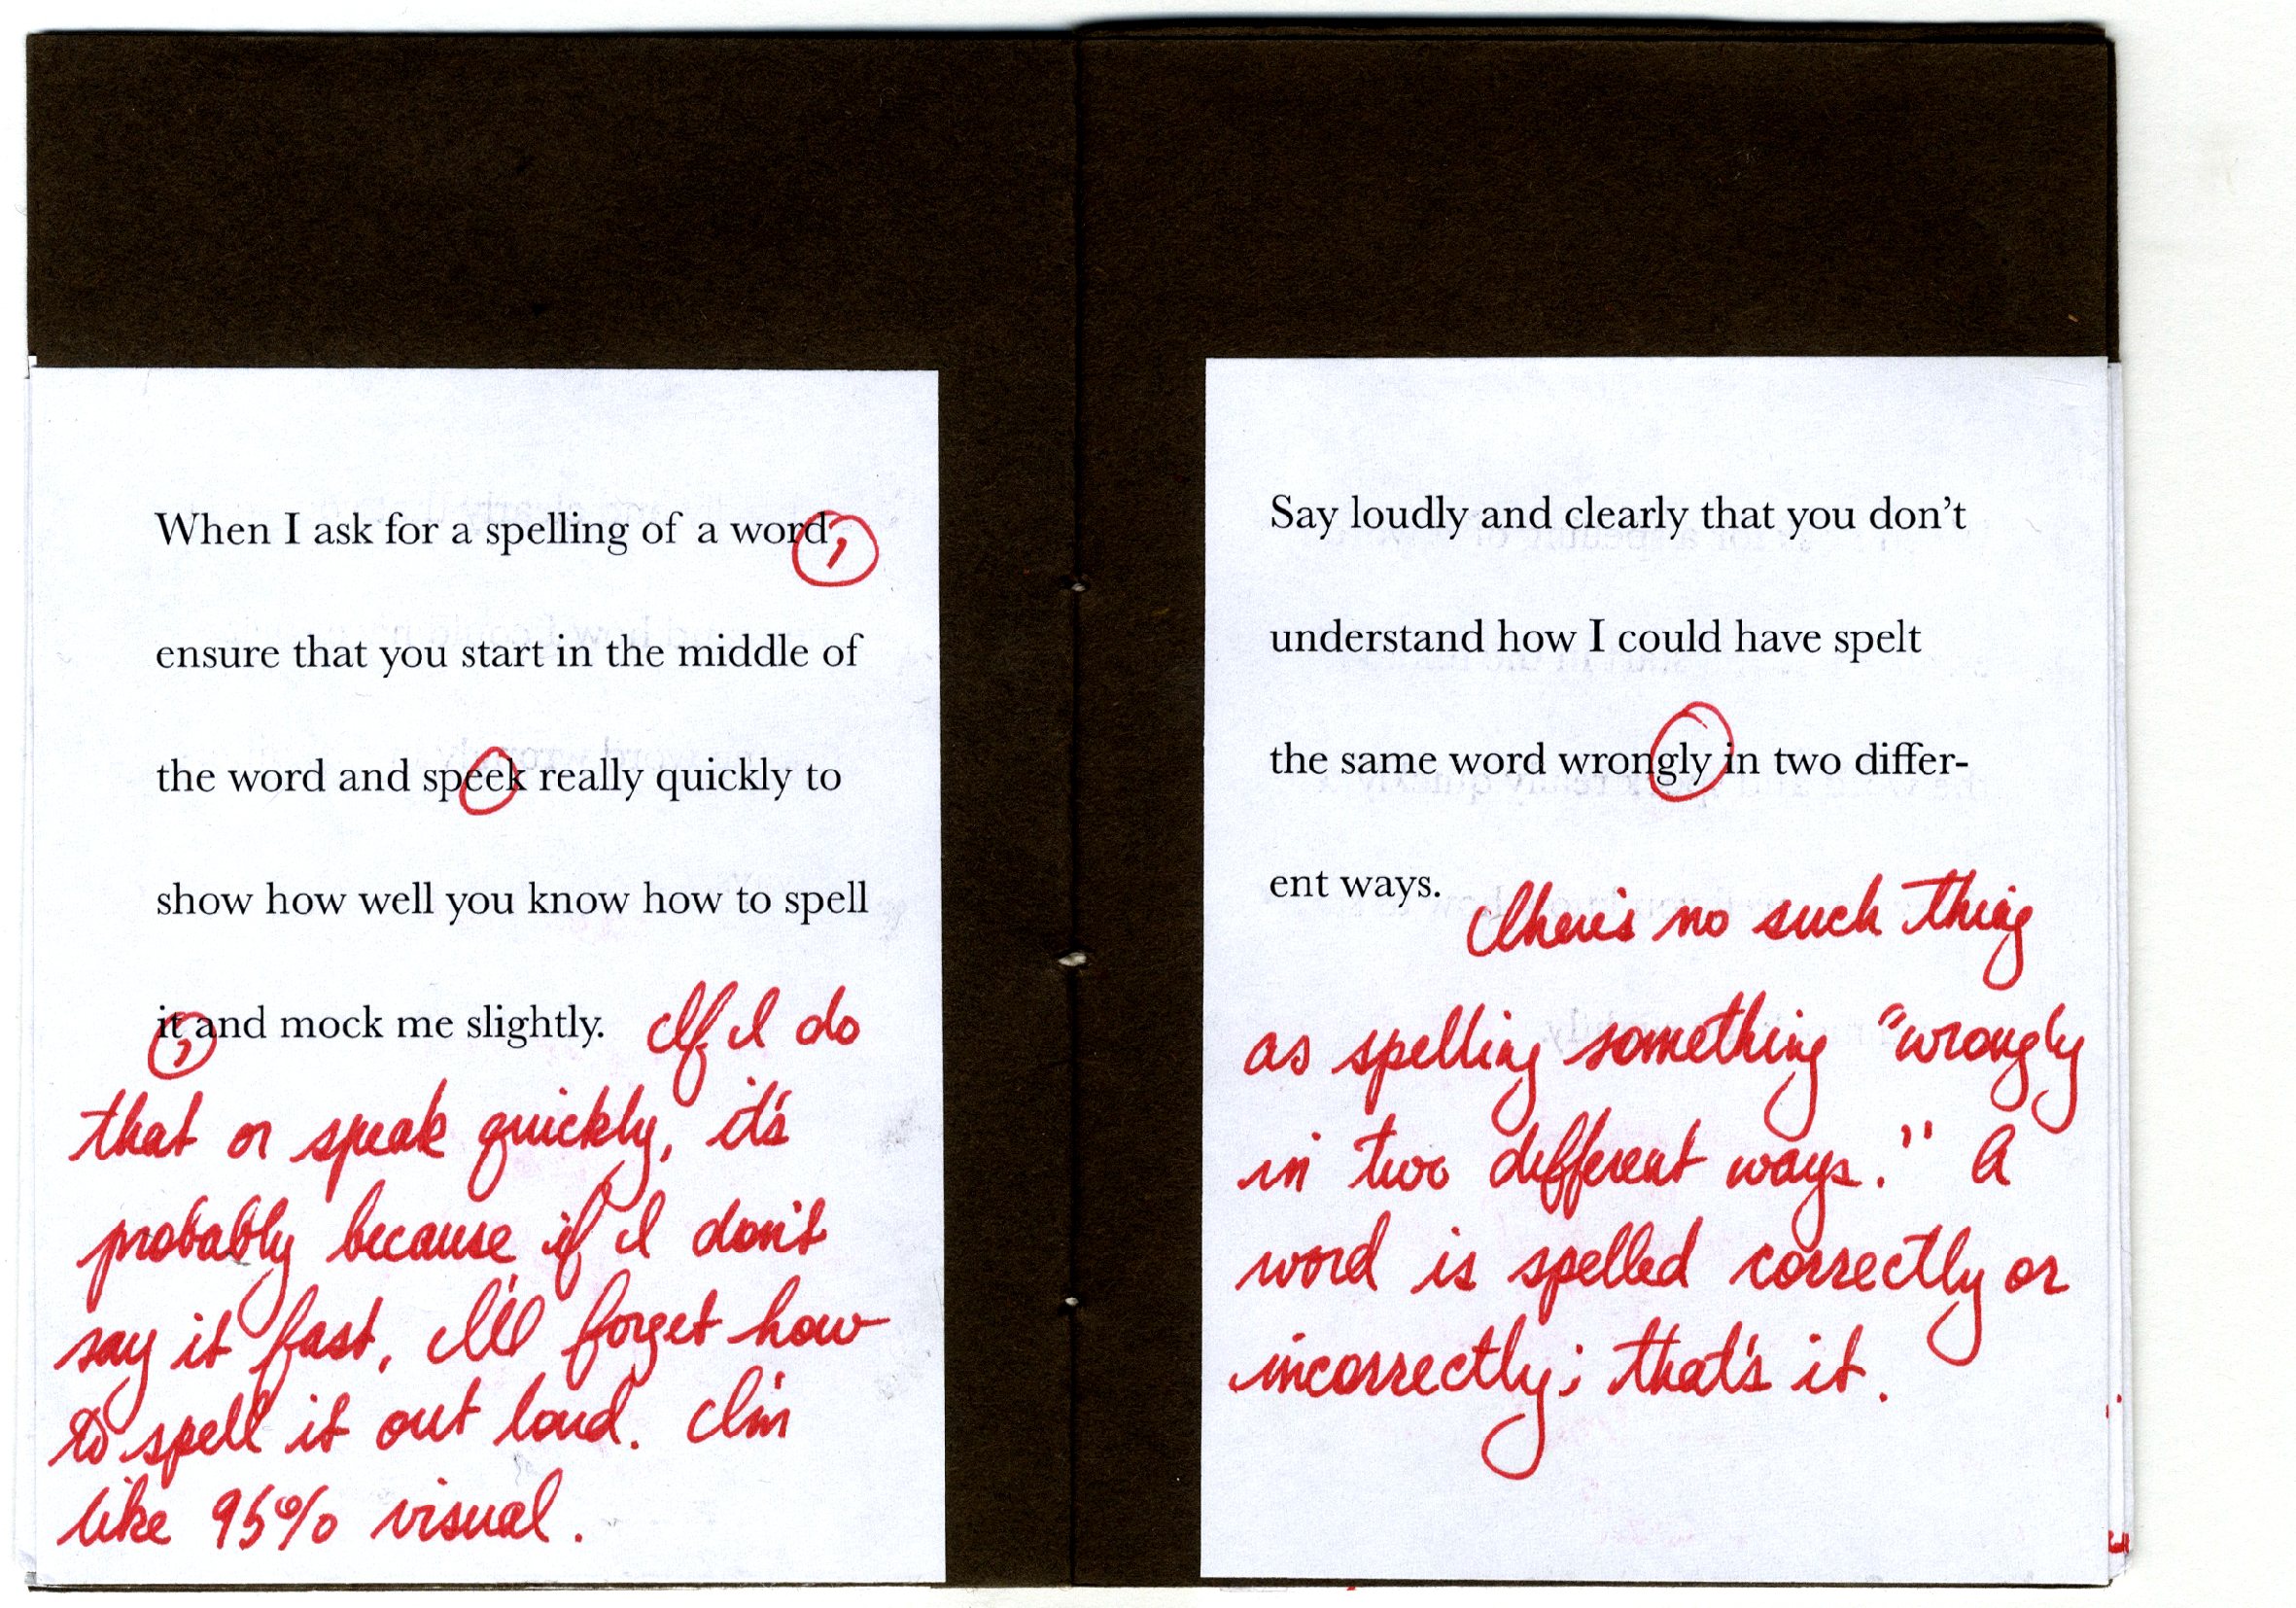 When I ask for a spelling of a word,
ensure that you start in the middle of
the word and speek really quickly to
show how well you know how to spell
it, and mock me slightly. If I do
that or speak quickly, it's
probably because if I don't
say it fast, I'll forget how
to spell it out loud. I'm
like 95% visual.
Say loudly and clearly that you don't
understand how I could have spelt
the same word wrongly in two differ-
ent ways. There's no such thing
as spelling something "wrongly
in two different ways." A
word is spelled correctly or
incorrectly; that's it.